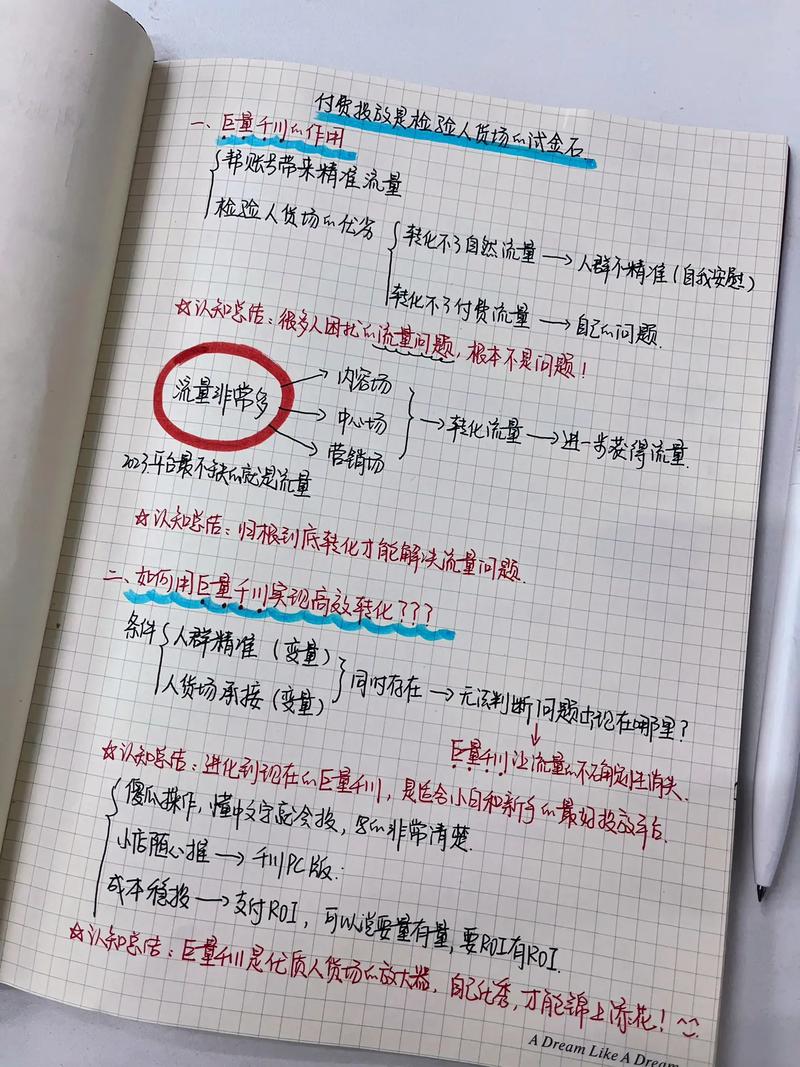 付费投放是检验人货场的试金石
一、巨量千川的作用
帮账号带来精准流量
检验人货场的优劣
转化不了自然流量→人群不精准(自我安慰)
转化不了付费流量→自己的问题.
☆认知总结:很多人困扰的流量问题,根本不是问题!
流量非常多
内容场
中心场
营销场
→转化流量→进一步获得流量.
2023平台最不缺的就是流量
☆认知总结:归根到底转化才能解决流量问题.
二、如何用巨量千川实现高效转化???
条件
人群精准(变量)
人货场承接(变量)
同时存在→无法判断问题出现在哪里?
巨量千川让流量的不确定性消失.
☆认知总结:进化到现在的巨量千川,是适合小白和新手的最好投放平台.
傻瓜操作,懂中文字就会投,写的非常清楚.
小店随心推→千川PC版.
成本稳投→支付ROI,可以说要量有量,要ROI有ROI.
☆认知总结:巨量千川是优质人货场的放大器,自己优秀,才能锦上添花!^^
A Dream Like A Dream